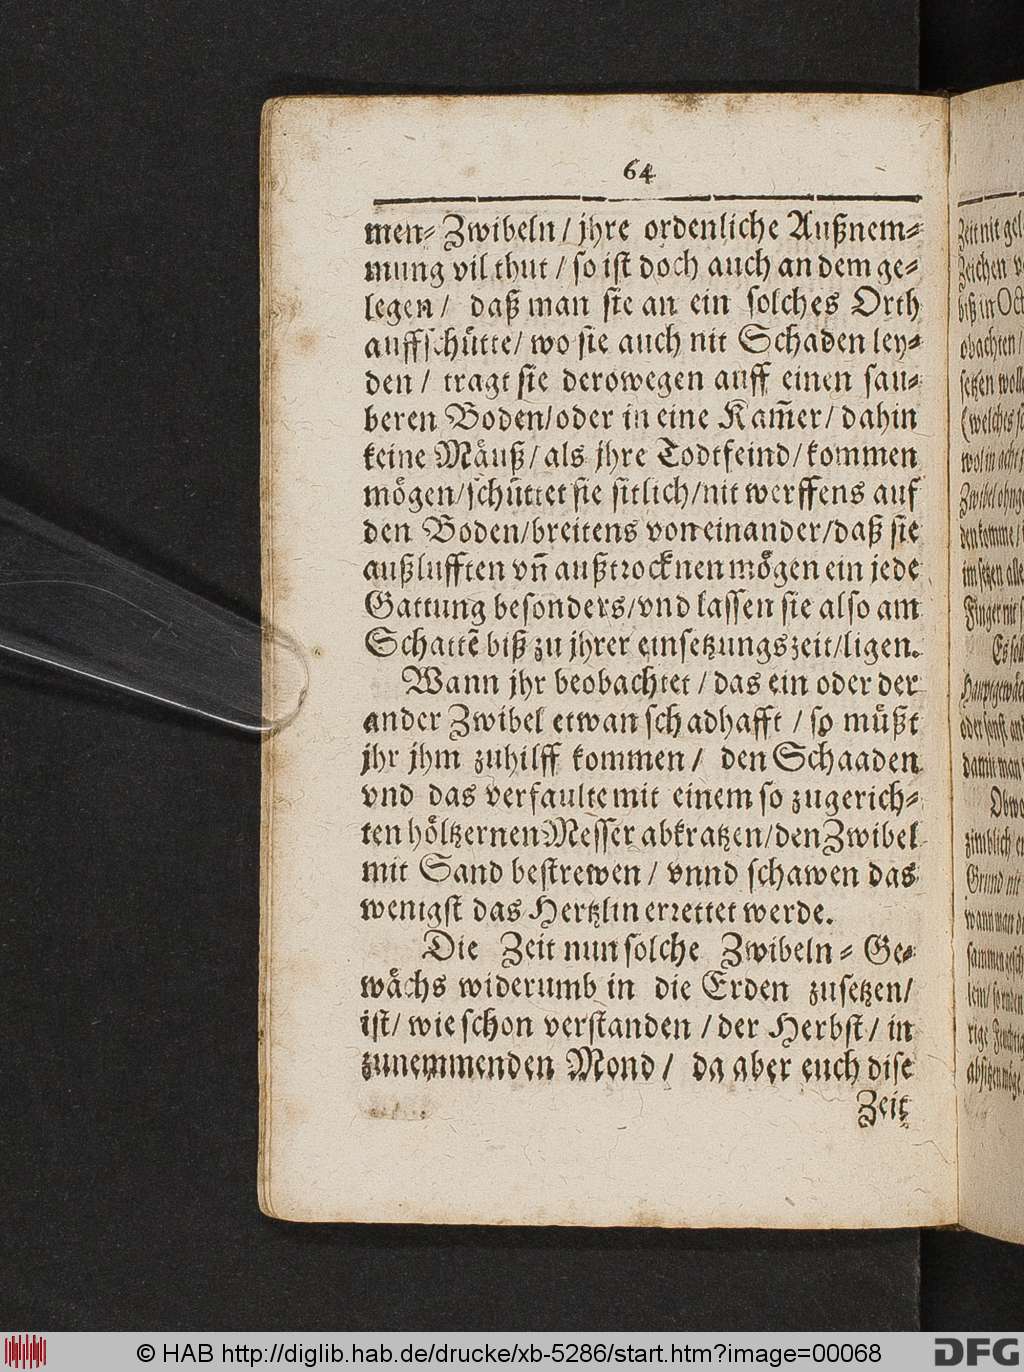 64
men- Zwibeln / jhre ordenliche Außnem-
mung vil thut / so ist doch auch an dem ge-
legen / daß man sie an ein solches Orth
auffschütte / wo sie auch nit Schaden ley-
den / tragt sie derowegen auff einen sau-
beren Boden / oder in eine Kam̃er / dahin
keine Mäuß / als jhre Todtfeind / kommen
mögen / schüttet sie sitlich / nit werffens auf
den Boden / breitens von einander / daß sie
außlufften vñ außtrocknen mögen ein jede
Gattung besonders / vnd lassen sie also am
Schattẽ biß zu jhrer einsetzungszeit / ligen.
Wann jhr beobachtet / das ein oder der
ander Zwibel etwan schadhafft / so müßt
jhr jhm zuhilff kommen / den Schaaden
vnd das verfaulte mit einem so zugerich-
ten höltzernen Messer abkratzen / den Zwibel
mit Sand bestrewen / vnnd schawen das
wenigst das Hertzlin errettet werde.
Die Zeit nun solche Zwibeln - Ge-
wächs widerumb in die Erden zusetzen /
ist / wie schon verstanden / der Herbst / in
zunemmenden Mond / da aber euch dise
Zeit
© HAB http://diglib.hab.de/drucke/xb-5286/start.htm?image=00068
DFG